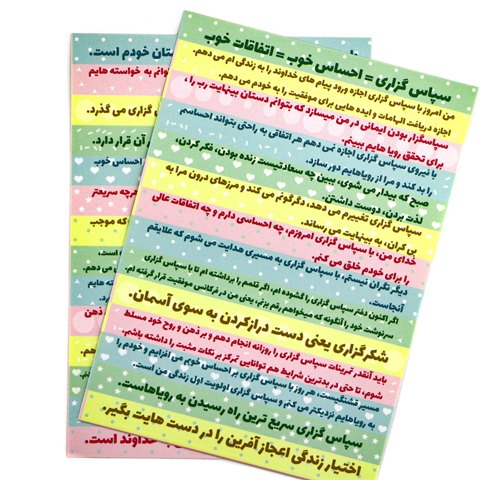 سپاس گزاری = احساس خوب = اتفاقات خوب
من امروز با سپاس گزاری اجازه ورود پیام های خداوند را به زندگی ام می دهم.
اجازه دریافت الهامات و ایده هایی برای موفقیت را به خودم می دهم.
سپاسگزار بودن ایمانی در من میسازد که بتوانم دستان بینهایت رب را ،
برای تحقق رویا هایم ببینم.
با نیروی سپاس گزاری اجازه نمی دهم هر اتفاقی به راحتی بتواند احساسم
را بد کند و مرا از رویاهایم دور سازد.
صبح که بیدار می شوی، ببین چه سعادتیست زنده بودن، فکر کردن،
لذت بردن، دوست داشتن.
سپاس گزاری تغییرم می دهد، دگرگونم می کند و مرزهای درون مرا به
بی کران، به بینهایت می رساند.
خدای من، با سپاس گزاری امروزم، چه احساسی دارم و چه اتفاقات عالی
را برای خودم خلق می کنم.
دیگر نگران نیستم، با سپاس گزاری به مسیری هدایت می شوم که علایقم
آنجاست.
اگر اکنون دفتر سپاس گزاری را گشوده ام، اگر قلمم را برداشته ام تا با سپاس گزاری
سرنوشت خود را آنگونه که میخواهم رقم بزنم، یعنی من در فرکانس موفقیت قرار گرفته ام.
شکرگزاری یعنی دست درازکردن به سوی آسمان.
باید آنقدر تمرینات سپاس گزاری را روزانه انجام دهم و بر ذهن و روح خود مسلط
شوم، تا حتی در بدترین شرایط هم توانایی تمرکز بر نکات مثبت را داشته باشم.
مسیر قشنگیست، هر روز با سپاس گزاری بر احساس خوبم می افزایم و خودم را
به رویاهایم نزدیکتر می کنم و سپاس گزاری اولویت اول زندگی من است.
سپاس گزاری سریع ترین راه رسیدن به رویاهاست.
اختیار زندگی اعجاز آفرین را در دست هایت بگیر.
ستان خودم است.
توانم به خواسته هایم
گزاری می گذرد.
آن قرار دارد.
احساس خوب
هرچه سریعتر
که موجب
خداوند است.